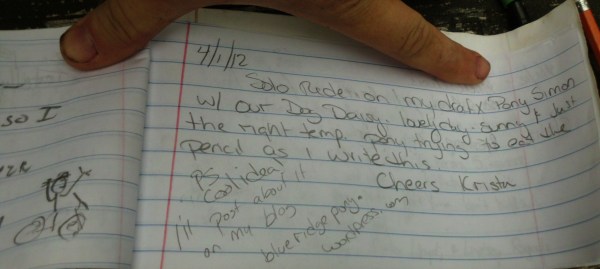 so I
4/1/12
Solo Ride on my draftx Pony Simon
w/ our Dog Daisy. lovely day. sunny & just
the right temp. pony trying to eat the
pencil as I write this.
Cheers Krista
PS
Cool idea!
i'll post about it
on my blog
blueridgepony.
wordpress.com